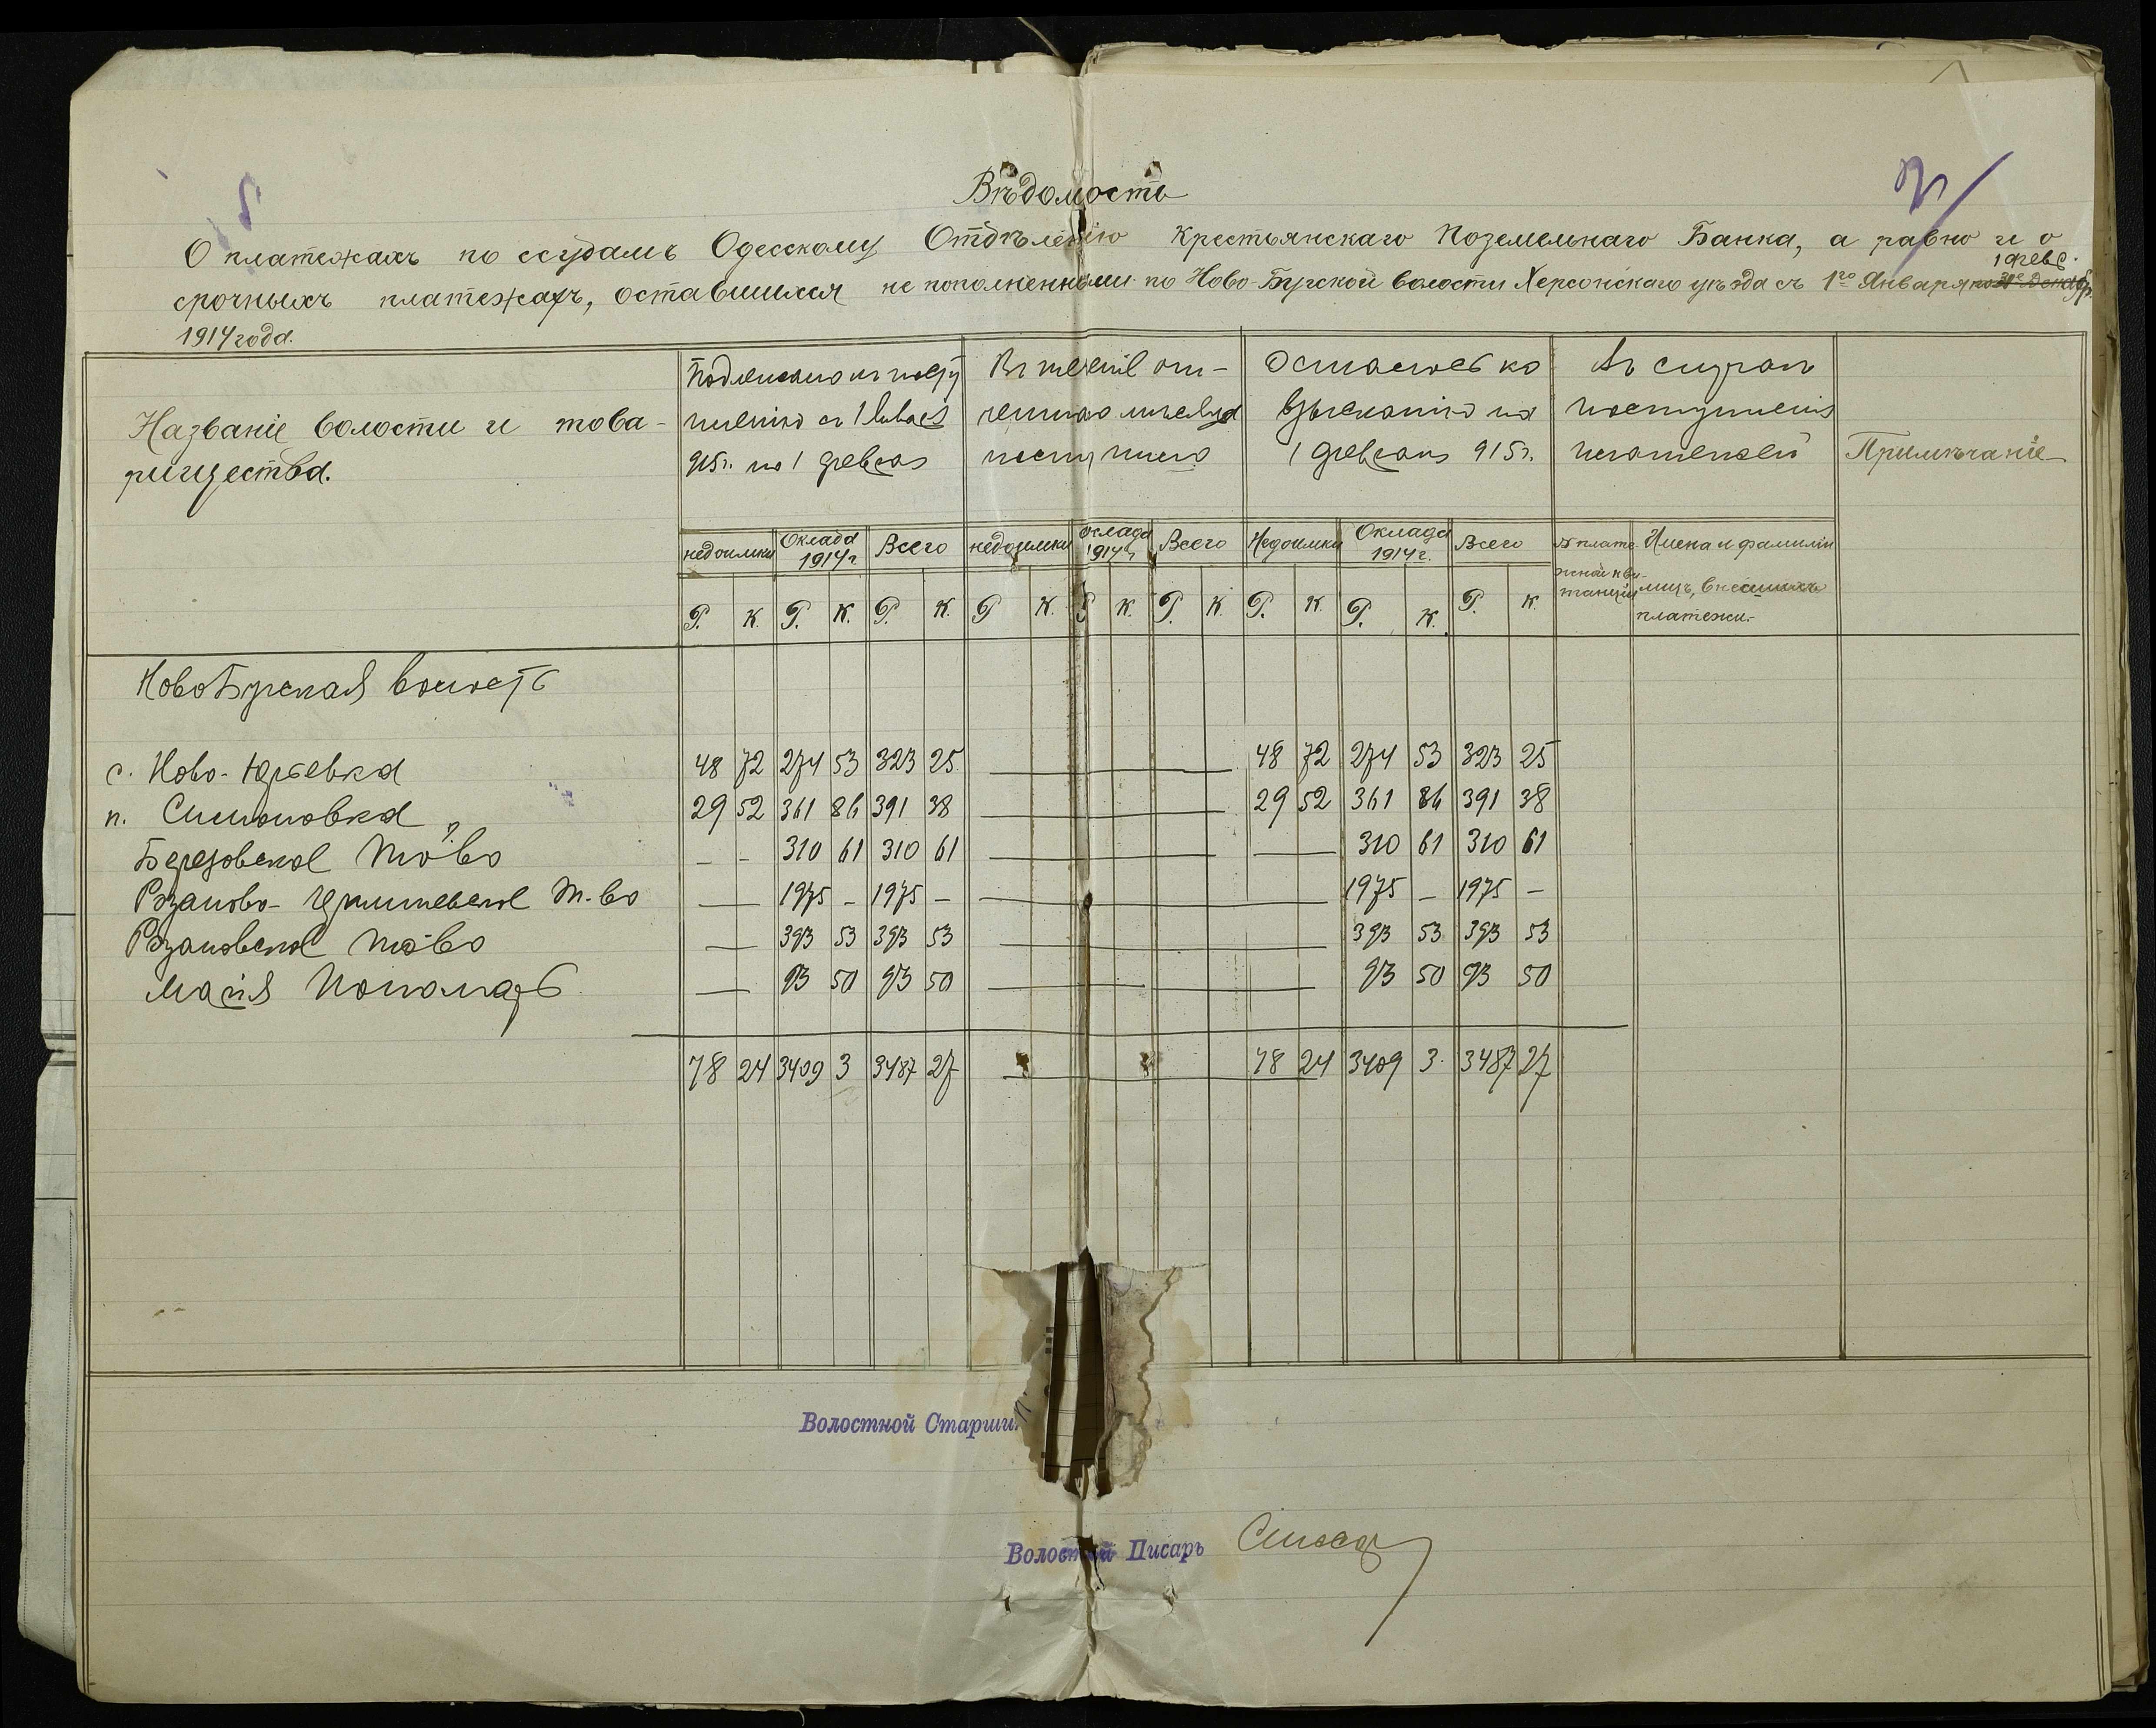 Вѣдомость
О платежахъ по ссудамъ Одесскому Отдѣленію Крестьянскаго Поземельнаго Банка, а равно и о
1 февр.
срочныхъ платежахъ, оставшихся не пополненными по Ново-Бугской волости Херсонскаго уѣзда съ 1го Января по 31е Декабр.
1914 года.
Названіе волости и това-
рищества.
Подлежало къ посту
пленію съ 1 Января
915г. по 1 февраля
Въ теченіе от-
четнаго мѣсяца
поступило
Осталось ко
взысканію на
1 февраля 915г.
Въ случаѣ
поступленія
платежей
Примѣчаніе
недоимки Оклада 1914 г. Всего недоимки оклада 1914 г. Всего Недоимки Оклада 1914 г. Всего № плате- Имена и фамиліи
жной кви-
танціи лицъ, внесшихъ
платежи.
Р. К. Р. К. Р. К. Р К. Р К. Р. К. Р. К Р. К. Р. К.
Ново Бугская волость
с. Ново-Юрьевка 48 72 274 53 323 25 — 48 72 274 53 323 25
п. Симоновка 29 52 361 86 391 38 — 29 52 361 86 391 38
Березовское Т-во - - 310 61 310 61 — — 310 61 310 61
Т-во — 1975 - 1975 - — 1975 - 1975 -
Т-во — 393 53 393 53 — 393 53 393 53
— 93 50 93 50 — 93 50 93 50
78 24 3409 3 3487 27 — 78 24 3409 3. 3487 27
Волостной Старшин
Волостной Писарь